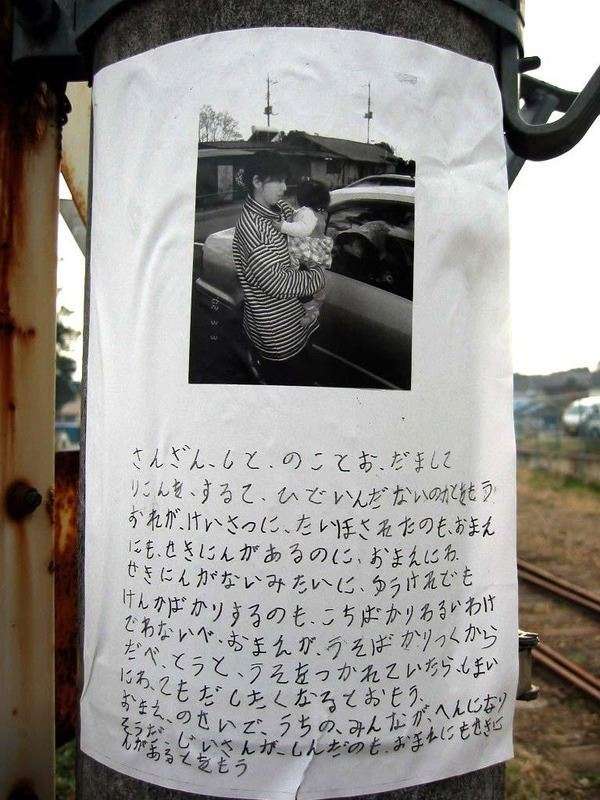 さんざん、しと、のことお、だまして
りこんを、するて、ひどいんだないのかとをもう
おれが、けいさつに、たいほされたのも、おまえ
にも、せきにんがあるのに、おまえにわ
せきにんがないみたいに、ゆうけれでも
けんかばかりするのも、こちばかりわるいわけ
でわないべ、おまえが、うそばかりつくから
だべ、とうと、うそをつかれていたら、しまい
にわ、てもだしたくなるとおもう、
おまえ、のせいで、うちの、みんなが、へんになり
そうだ、じいさんが、しんだのも、おまえにもせきに
んがあるとをもう